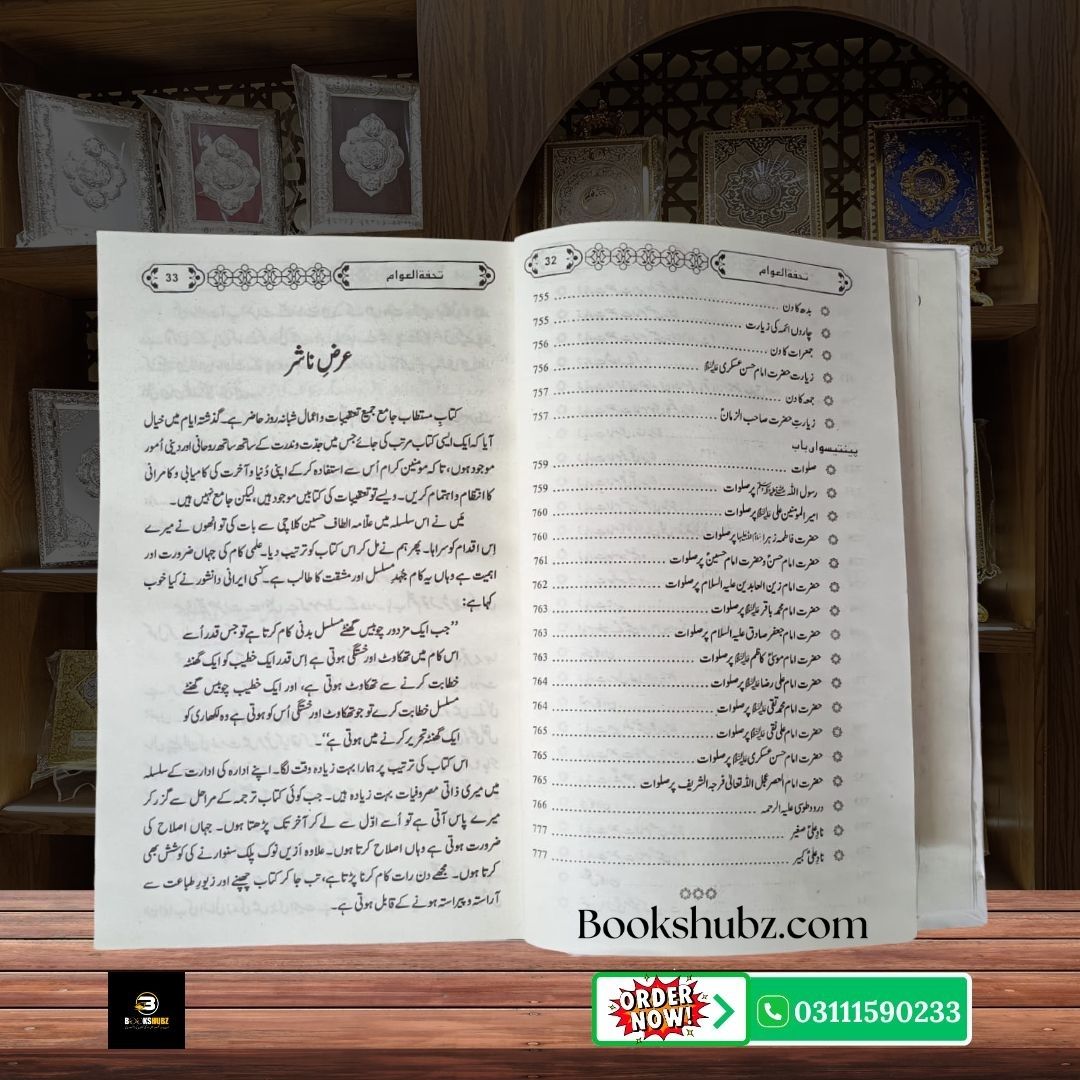 32 تحفۃ العوام
بدھ کا دن 755
چاروں ائمہ کی زیارت 755
جمعرات کا دن 756
زیارت حضرت امام حسن عسکری علیہ السلام 756
جمعہ کا دن 757
زیارتِ حضرت صاحب الزمانؑ 757
پینتیسواں باب
صلوات 759
رسول اللہ ﷺ پر صلوات 759
امیر المومنین علی علیہ السلام پر صلوات 760
حضرت فاطمہ زہرا سلام اللہ علیہا پر صلوات 760
حضرت امام حسنؑ و حضرت امام حسینؑ پر صلوات 761
حضرت امام زین العابدین علیہ السلام پر صلوات 762
حضرت امام محمد باقر علیہ السلام پر صلوات 763
حضرت امام جعفر صادق علیہ السلام پر صلوات 763
حضرت امام موسیٰ کاظم علیہ السلام پر صلوات 763
حضرت امام علی رضا علیہ السلام پر صلوات 764
حضرت امام محمد تقی علیہ السلام پر صلوات 764
حضرت امام علی نقی علیہ السلام پر صلوات 765
حضرت امام حسن عسکری علیہ السلام پر صلوات 765
حضرت امام العصر عجل اللہ تعالیٰ فرجہ الشریف پر صلوات 765
درود طوسی علیہ الرحمہ 766
نادِ علیؑ صغیر 777
نادِ علیؑ کبیر 777
33 تحفۃ العوام
عرضِ ناشر
کتابِ مستطاب جامع جمیع تعقیبات و اعمال شبانہ روز حاضر ہے۔ گذشتہ ایام میں خیال
آیا کہ ایک ایسی کتاب مرتب کی جائے جس میں جدت و ندرت کے ساتھ ساتھ روحانی اور دینی اُمور
موجود ہوں، تاکہ مومنین کرام اُس سے استفادہ کرکے اپنی دُنیا و آخرت کی کامیابی و کامرانی
کا انتظام و اہتمام کریں۔ ویسے تو تعقیبات کی کتابیں موجود ہیں، لیکن جامع نہیں ہیں۔
مَیں نے اس سلسلہ میں علّامہ الطاف حسین کلاچی سے بات کی تو انھوں نے میرے
اِس اقدام کو سراہا۔ پھر ہم نے مل کر اس کتاب کو ترتیب دیا۔ علمی کام کی جہاں ضرورت اور
اہمیت ہے وہاں یہ کام جُہدِ مسلسل اور مشقت کا طالب ہے۔ کسی ایرانی دانشور نے کیا خوب
کہا ہے:
”جب ایک مزدور چوبیس گھنٹے مسلسل بدنی کام کرتا ہے تو جس قدر اُسے
اس کام میں تھکاوٹ اور خستگی ہوتی ہے اِس قدر ایک خطیب کو ایک گھنٹہ
خطابت کرنے سے تھکاوٹ ہوتی ہے، اور ایک خطیب چوبیس گھنٹے
مسلسل خطابت کرے تو جو تھکاوٹ اور خستگی اُس کو ہوتی ہے وہ لکھاری کو
ایک گھنٹہ تحریر کرنے میں ہوتی ہے“۔
اس کتاب کی ترتیب پر ہمارا بہت زیادہ وقت لگا۔ اپنے ادارہ کی ادارت کے سلسلہ
میں میری ذاتی مصروفیات بہت زیادہ ہیں۔ جب کوئی کتاب ترجمہ کے مراحل سے گزر کر
میرے پاس آتی ہے تو اُسے اوّل سے لے کر آخر تک پڑھتا ہوں۔ جہاں اصلاح کی
ضرورت ہوتی ہے وہاں اصلاح کرتا ہوں۔ علاوہ ازیں نوک پلک سنوارنے کی کوشش بھی
کرتا ہوں۔ مجھے دن رات کام کرنا پڑتا ہے، تب جا کر کتاب چھپنے اور زیورِ طباعت سے
آراستہ و پیراستہ ہونے کے قابل ہوتی ہے۔
Bookshubz.com
BOOKSHUBZ
ORDER NOW!
03111590233